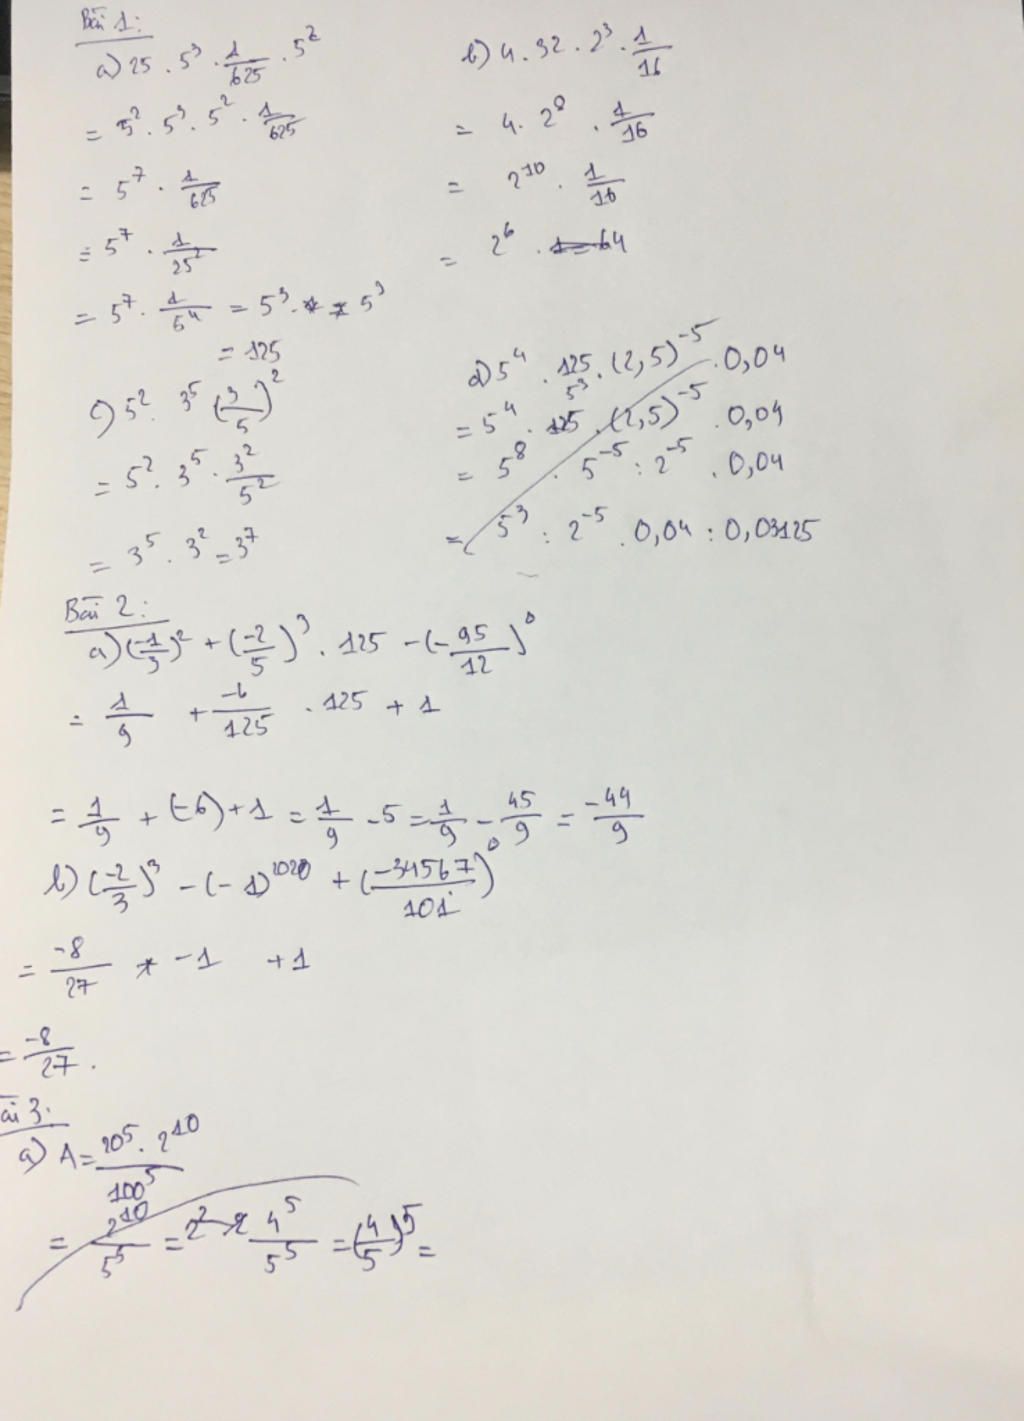 Bài 1:
a) 25 . 5³ . 1/625 . 5²
= 5² . 5³ . 5² . 1/625
= 5⁷ . 1/625
= 5⁷ . 1/25²
= 5⁷ . 1/5⁴ = 5³ . = 5³
= 125
b) 4 . 32 . 2³ . 1/16
= 4 . 2⁸ . 1/16
= 2¹⁰ . 1/16
= 2⁶ . 1 = 64
c) 5² . 3⁵ (3/5)²
= 5² . 3⁵ . 3²/5²
= 3⁵ . 3² = 3⁷
d) 5⁴ . 125 . (2,5)⁻⁵ . 0,04
= 5⁴ . 5³ . (2,5)⁻⁵ . 0,04
= 5⁸ . 5⁻⁵ : 2⁻⁵ . 0,04
= 5³ : 2⁻⁵ . 0,04 : 0,03125
Bài 2:
a) (-1/3)² + (-2/5)³ . 125 - (-95/12)⁰
= 1/9 + -6/125 . 125 + 1
= 1/9 + (-6) + 1 = 1/9 - 5 = 1/9 - 45/9 = -44/9
b) (-2/3)³ - (-1)²⁰²⁰ + (-34567/101)⁰
= -8/27 -1 +1
= -8/27 .
ài 3:
a) A = 20⁵ . 2¹⁰/100⁵
= 2¹⁰/5⁵ = 2² 4⁵/5⁵ = (4/5)⁵ =